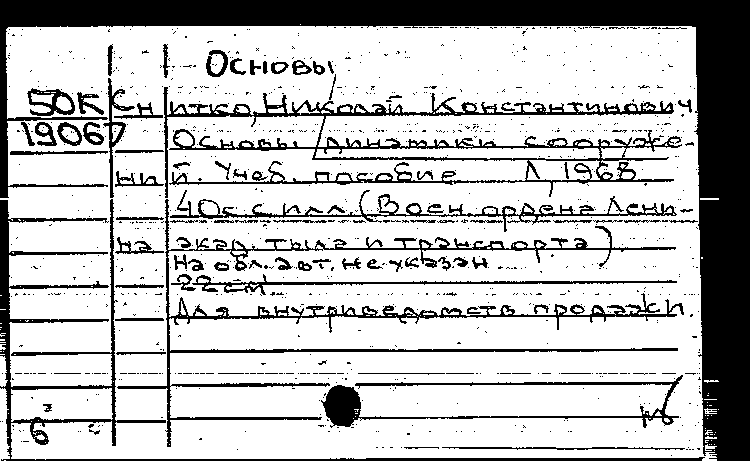 Основы
50К Снитко, Николай Константинович.
19067 Основы динамики сооруже-
ний. Учеб. пособие Л, 1968.
40с. с илл. (Воен. ордена Лени-
на акад. тыла и транспорта).
На обл. авт. не указан.
22 см.
Для внутриведомств. продажи.
6